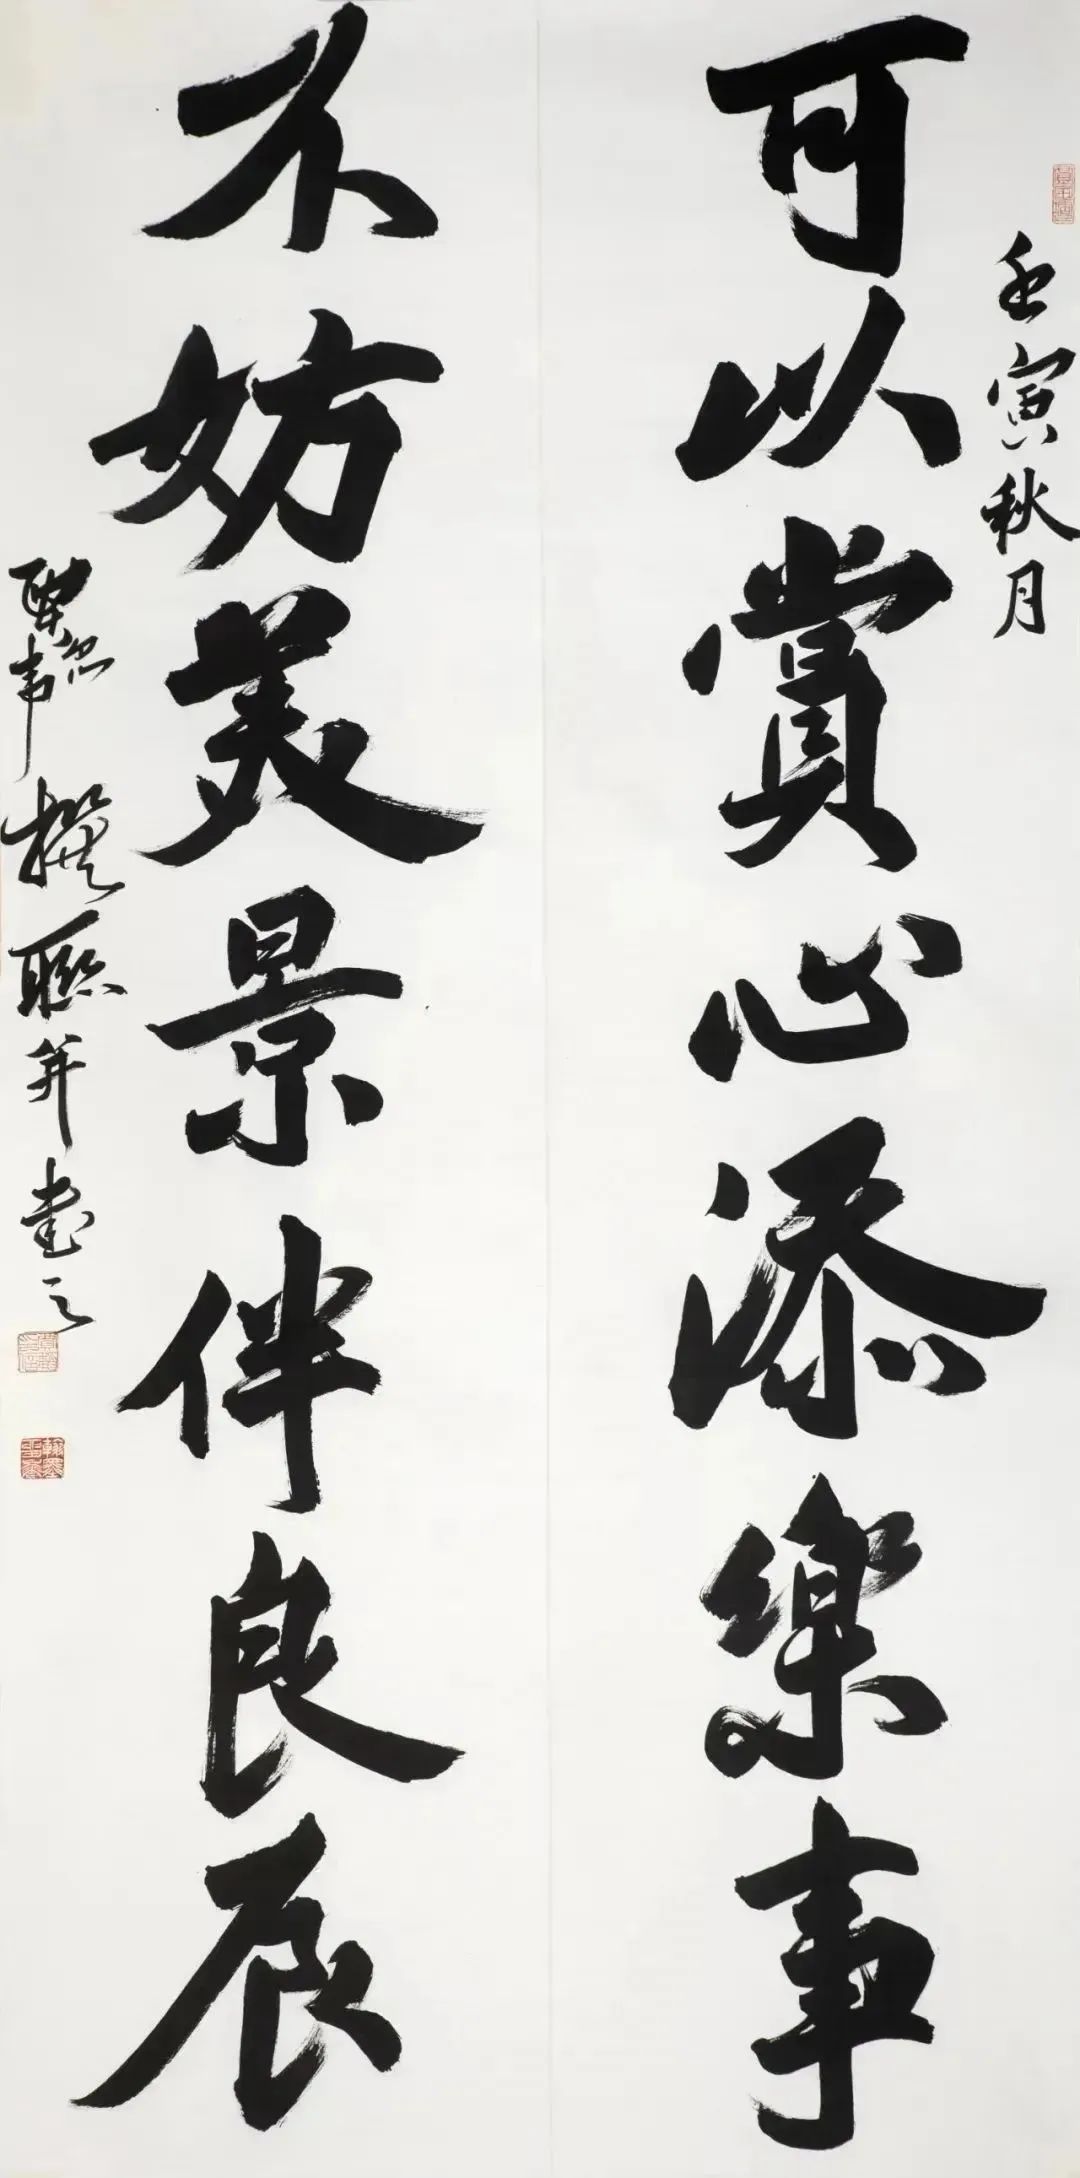 壬寅秋月
可以賞心添樂事
不妨美景伴良辰
撰聯并書之